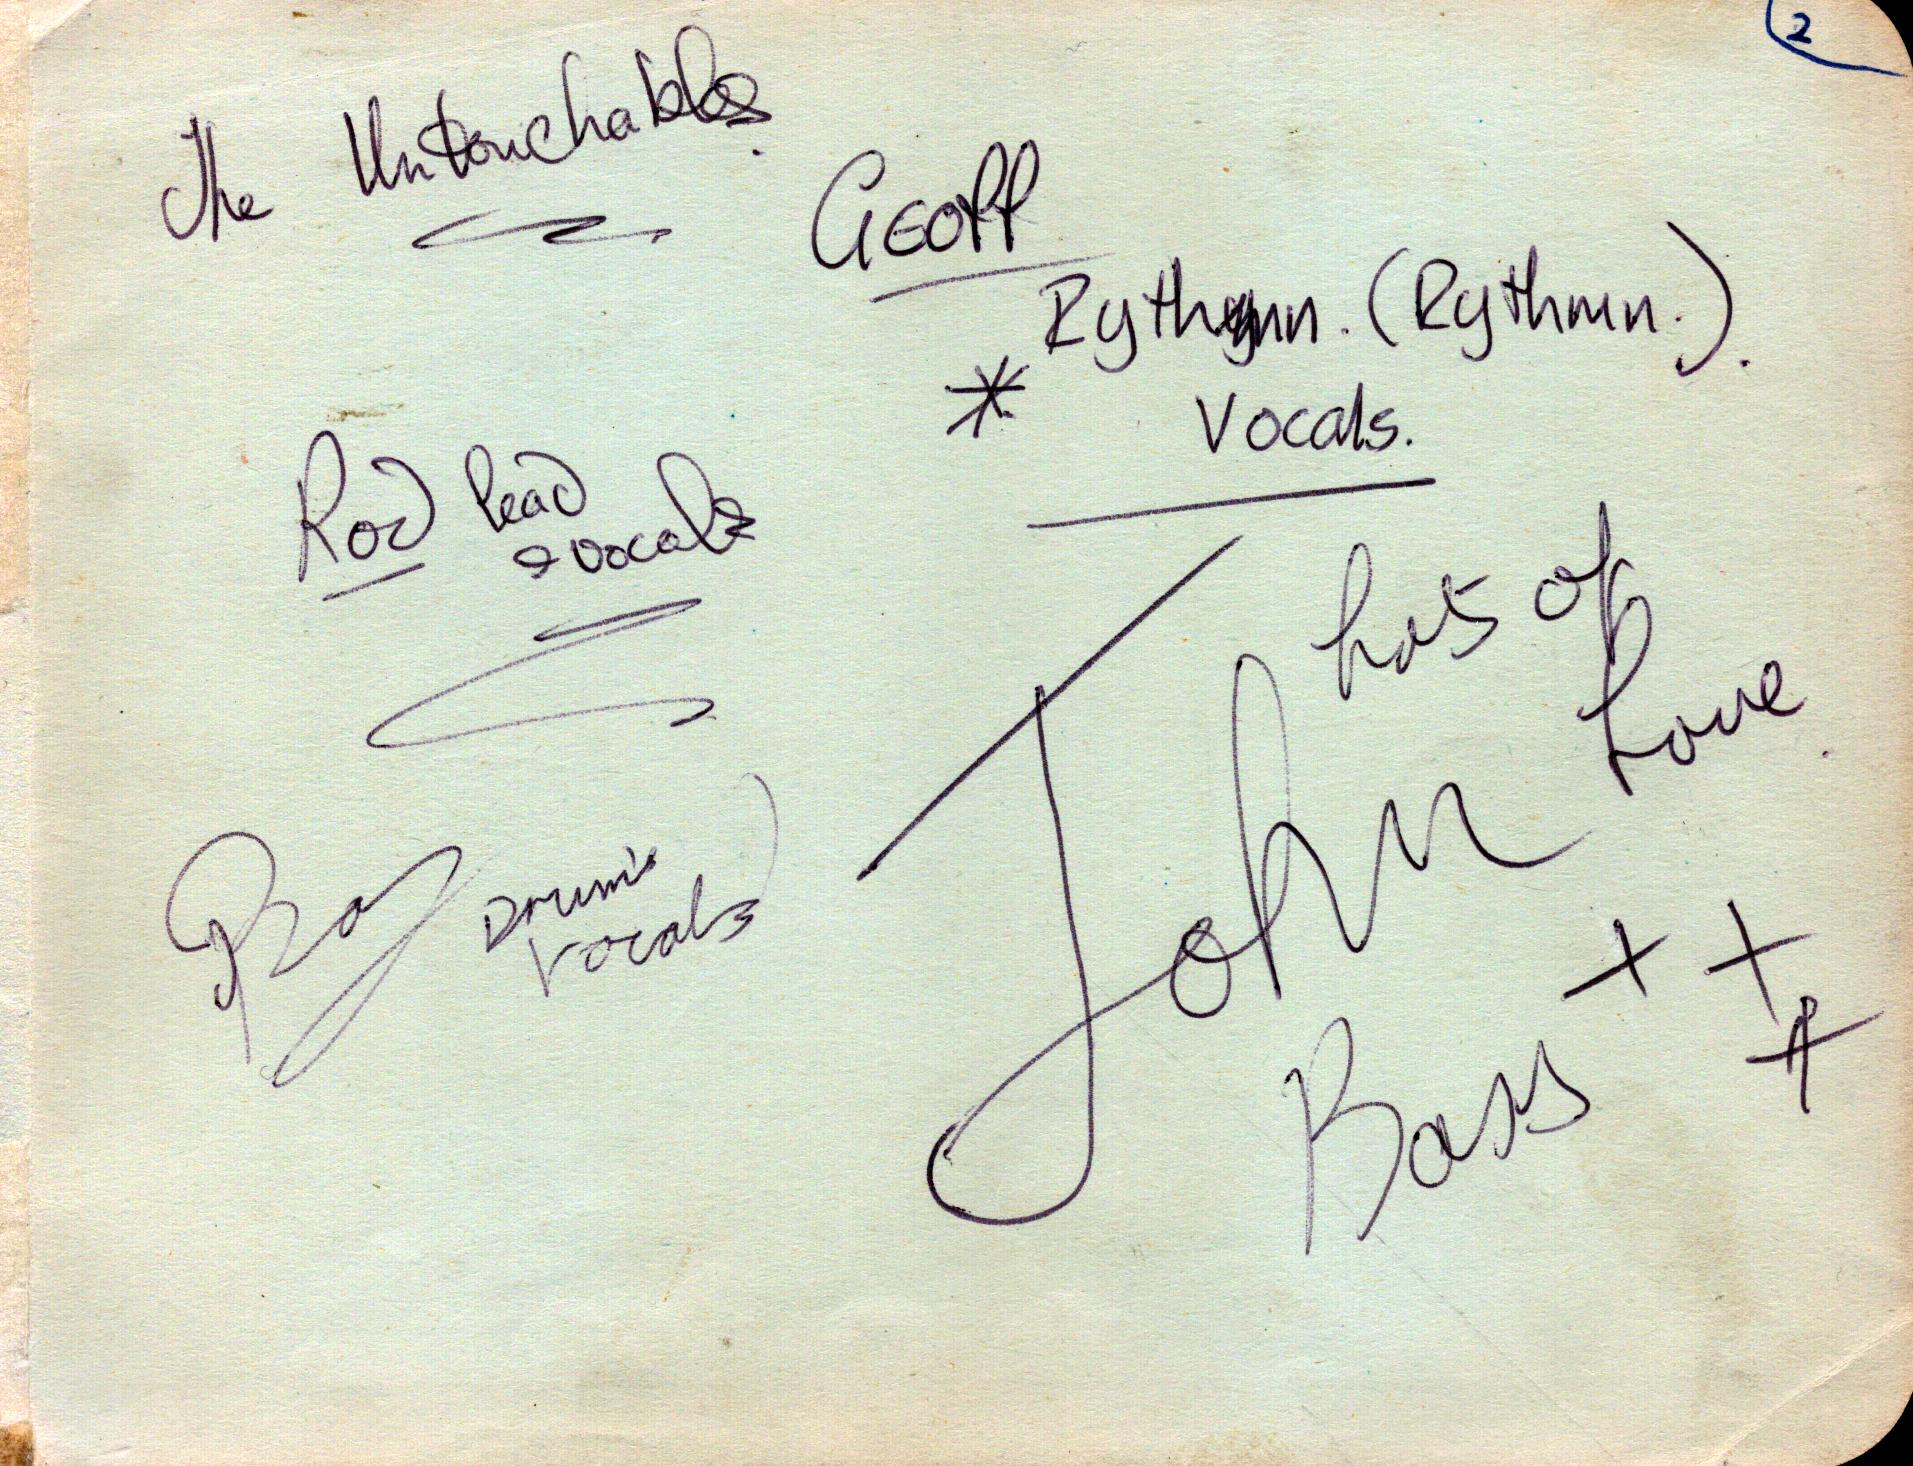 2
The Untouchables.
Geoff
Rythmn. (Rythmn.).
* Vocals.
Rod lead
& vocals
Lots of
Love.
John
Bass
+ + +
Roy Drums
Vocals